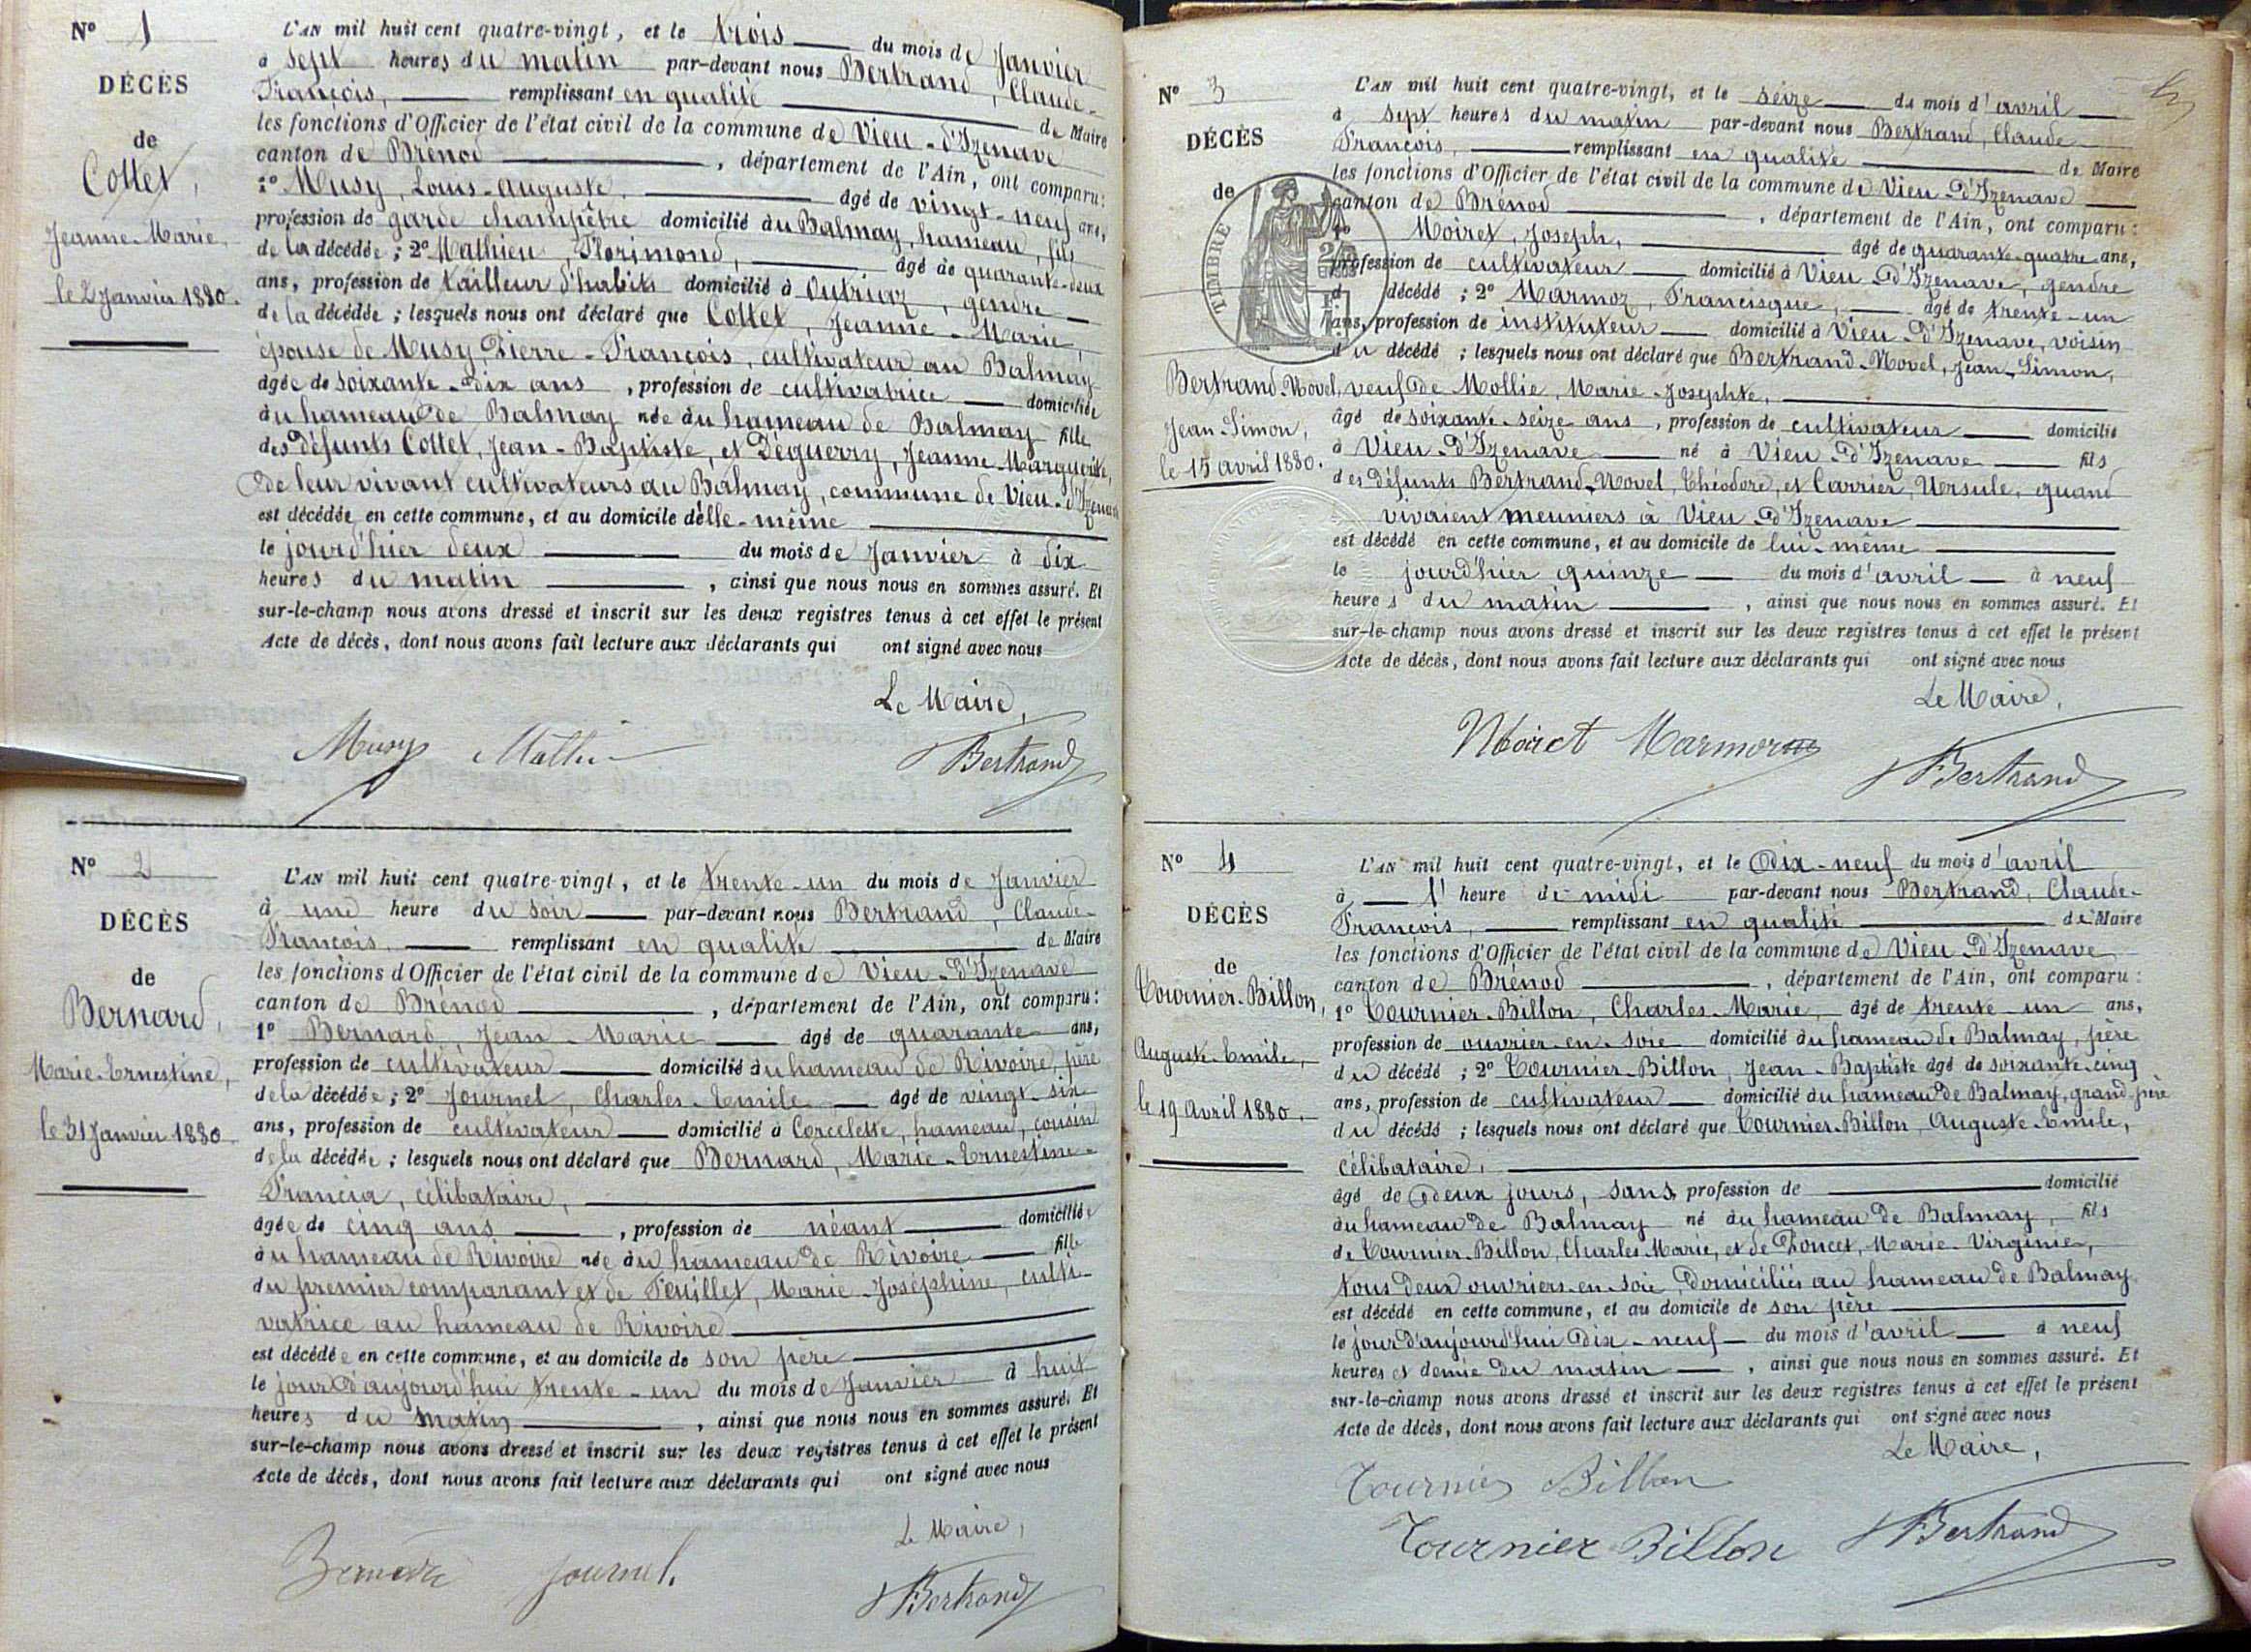 N° 1
DÉCÈS
de
Cottet,
Jeanne-Marie,
le 2 Janvier 1880.
L'AN mil huit cent quatre-vingt, et le trois du mois de Janvier
à sept heures du matin par-devant nous Bertrand, Claude-
François, remplissant en qualité de Maire
les fonctions d'Officier de l'état civil de la commune de Vieu-d'Izenave
canton de Brénod, département de l'Ain, ont comparu:
1° Musy, Louis-Auguste, âgé de vingt-neuf ans,
profession de garde champêtre domicilié au Balmay, hameau, fils
de la décédée; 2° Mathieu, Florimond, âgé de quarante-deux
ans, profession de tailleur d'habits domicilié à Outriaz, gendre
de la décédée; lesquels nous ont déclaré que Cottet, Jeanne-Marie,
épouse de Musy Pierre-François, cultivateur au Balmay
âgée de soixante-dix ans, profession de cultivatrice domiciliée
au hameau de Balmay née au hameau de Balmay fille
des défunts Cottet, Jean-Baptiste, et Déguerry, Jeanne Marguerite,
de leur vivant cultivateurs au Balmay, commune de Vieu-d'Izenave
est décédée en cette commune, et au domicile d'elle-même
le jourd'hier deux du mois de Janvier à dix
heures du matin, ainsi que nous nous en sommes assuré. Et
sur-le-champ nous avons dressé et inscrit sur les deux registres tenus à cet effet le présent
Acte de décès, dont nous avons fait lecture aux déclarants qui ont signé avec nous
Le Maire,
Musy Mathieu Bertrand
N° 2
DÉCÈS
de
Bernard,
Marie-Ernestine,
le 31 Janvier 1880.
L'AN mil huit cent quatre-vingt, et le trente-un du mois de Janvier
à une heure du soir par-devant nous Bertrand, Claude-
François, remplissant en qualité de Maire
les fonctions d'Officier de l'état civil de la commune de Vieu-d'Izenave
canton de Brénod, département de l'Ain, ont comparu:
1° Bernard, Jean-Marie âgé de quarante ans,
profession de cultivateur domicilié au hameau de Rivoire, père
de la décédée; 2° Journel, Charles-Emile âgé de vingt-six
ans, profession de cultivateur domicilié à Corcelette, hameau, cousin
de la décédée; lesquels nous ont déclaré que Bernard, Marie-Ernestine-
Francia, célibataire,
âgée de cinq ans, profession de néant domiciliée
au hameau de Rivoire née au hameau de Rivoire fille
du premier comparant et de Feuillet, Marie-Joséphine, culti-
vatrice au hameau de Rivoire
est décédée en cette commune, et au domicile de son père
le jour d'aujourd'hui trente-un du mois de Janvier à huit
heures du matin, ainsi que nous nous en sommes assuré. Et
sur-le-champ nous avons dressé et inscrit sur les deux registres tenus à cet effet le présent
Acte de décès, dont nous avons fait lecture aux déclarants qui ont signé avec nous
Le Maire,
Bernard Journel. Bertrand
N° 3
DÉCÈS
de
TIMBRE
Bertrand-Novel,
Jean-Simon,
le 15 avril 1880.
L'AN mil huit cent quatre-vingt, et le seize du mois d'avril
à sept heures du matin par-devant nous Bertrand, Claude
François, remplissant en qualité de Maire
les fonctions d'Officier de l'état civil de la commune de Vieu-d'Izenave
canton de Brénod, département de l'Ain, ont comparu:
1° Moiret, Joseph, âgé de quarante-quatre ans,
profession de cultivateur domicilié à Vieu-d'Izenave, gendre
d décédé; 2° Marmoz, Francisque, âgé de trente-un
ans, profession de instituteur domicilié à Vieu-d'Izenave, voisin
du décédé; lesquels nous ont déclaré que Bertrand-Novel, Jean-Simon,
veuf de Mollie, Marie-Josephte,
âgé de soixante-seize ans, profession de cultivateur domicilié
à Vieu-d'Izenave né à Vieu-d'Izenave fils
des défunts Bertrand-Novel, Théodore, et Carrier, Ursule, quand
vivaient meuniers à Vieu-d'Izenave
est décédé en cette commune, et au domicile de lui-même
le jourd'hier quinze du mois d'avril à neuf
heures du matin, ainsi que nous nous en sommes assuré. Et
sur-le-champ nous avons dressé et inscrit sur les deux registres tenus à cet effet le présent
Acte de décès, dont nous avons fait lecture aux déclarants qui ont signé avec nous
Le Maire,
Moiret Marmoz Bertrand
N° 4
DÉCÈS
de
Tournier-Billon,
Auguste-Emile,
le 19 Avril 1880.
L'AN mil huit cent quatre-vingt, et le dix-neuf du mois d'avril
à l' heure de midi par-devant nous Bertrand, Claude-
François, remplissant en qualité de Maire
les fonctions d'Officier de l'état civil de la commune de Vieu-d'Izenave
canton de Brénod, département de l'Ain, ont comparu:
1° Tournier-Billon, Charles-Marie, âgé de trente-un ans,
profession de ouvrier-en-soie domicilié au hameau de Balmay, père
du décédé; 2° Tournier-Billon, Jean-Baptiste âgé de soixante-cinq
ans, profession de cultivateur domicilié au hameau de Balmay, grand-père
du décédé; lesquels nous ont déclaré que Tournier-Billon, Auguste-Emile,
célibataire,
âgé de deux jours, sans profession de domicilié
au hameau de Balmay né au hameau de Balmay, fils
de Tournier-Billon, Charles Marie, et de Poncet, Marie-Virginie,
tous deux ouvriers-en-soie, domiciliés au hameau de Balmay
est décédé en cette commune, et au domicile de son père
le jour d'aujourd'hui dix-neuf du mois d'avril à neuf
heures et demie du matin, ainsi que nous nous en sommes assuré. Et
sur-le-champ nous avons dressé et inscrit sur les deux registres tenus à cet effet le présent
Acte de décès, dont nous avons fait lecture aux déclarants qui ont signé avec nous
Le Maire,
Tournier Billon
Tournier Billon Bertrand